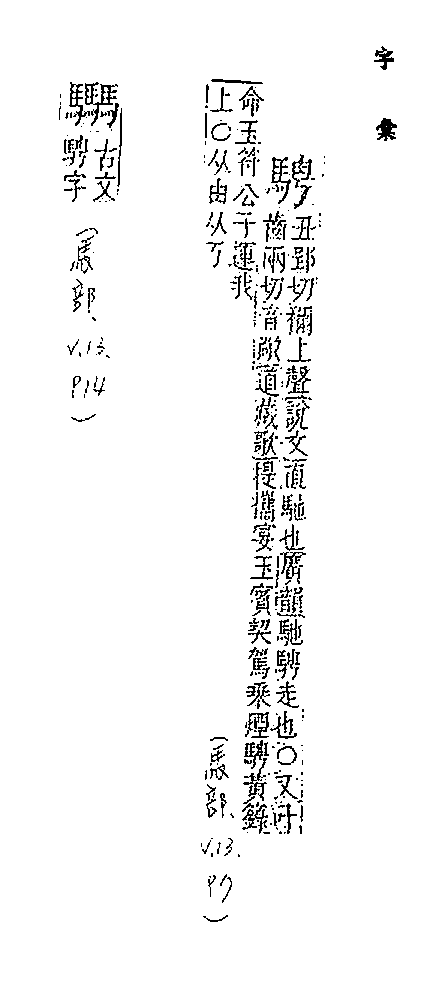 字彙
騁
丑郢切稱上聲說文直馳也廣韻馳騁走也〇又叶
齒兩切音敞道藏歌提攜宴玉賓契駕乘煙騁黃籙
命玉符公子運我
上〇从由从丂
(馬部、v.13. P7)
古文
騁字
(馬部、v.13. P14)